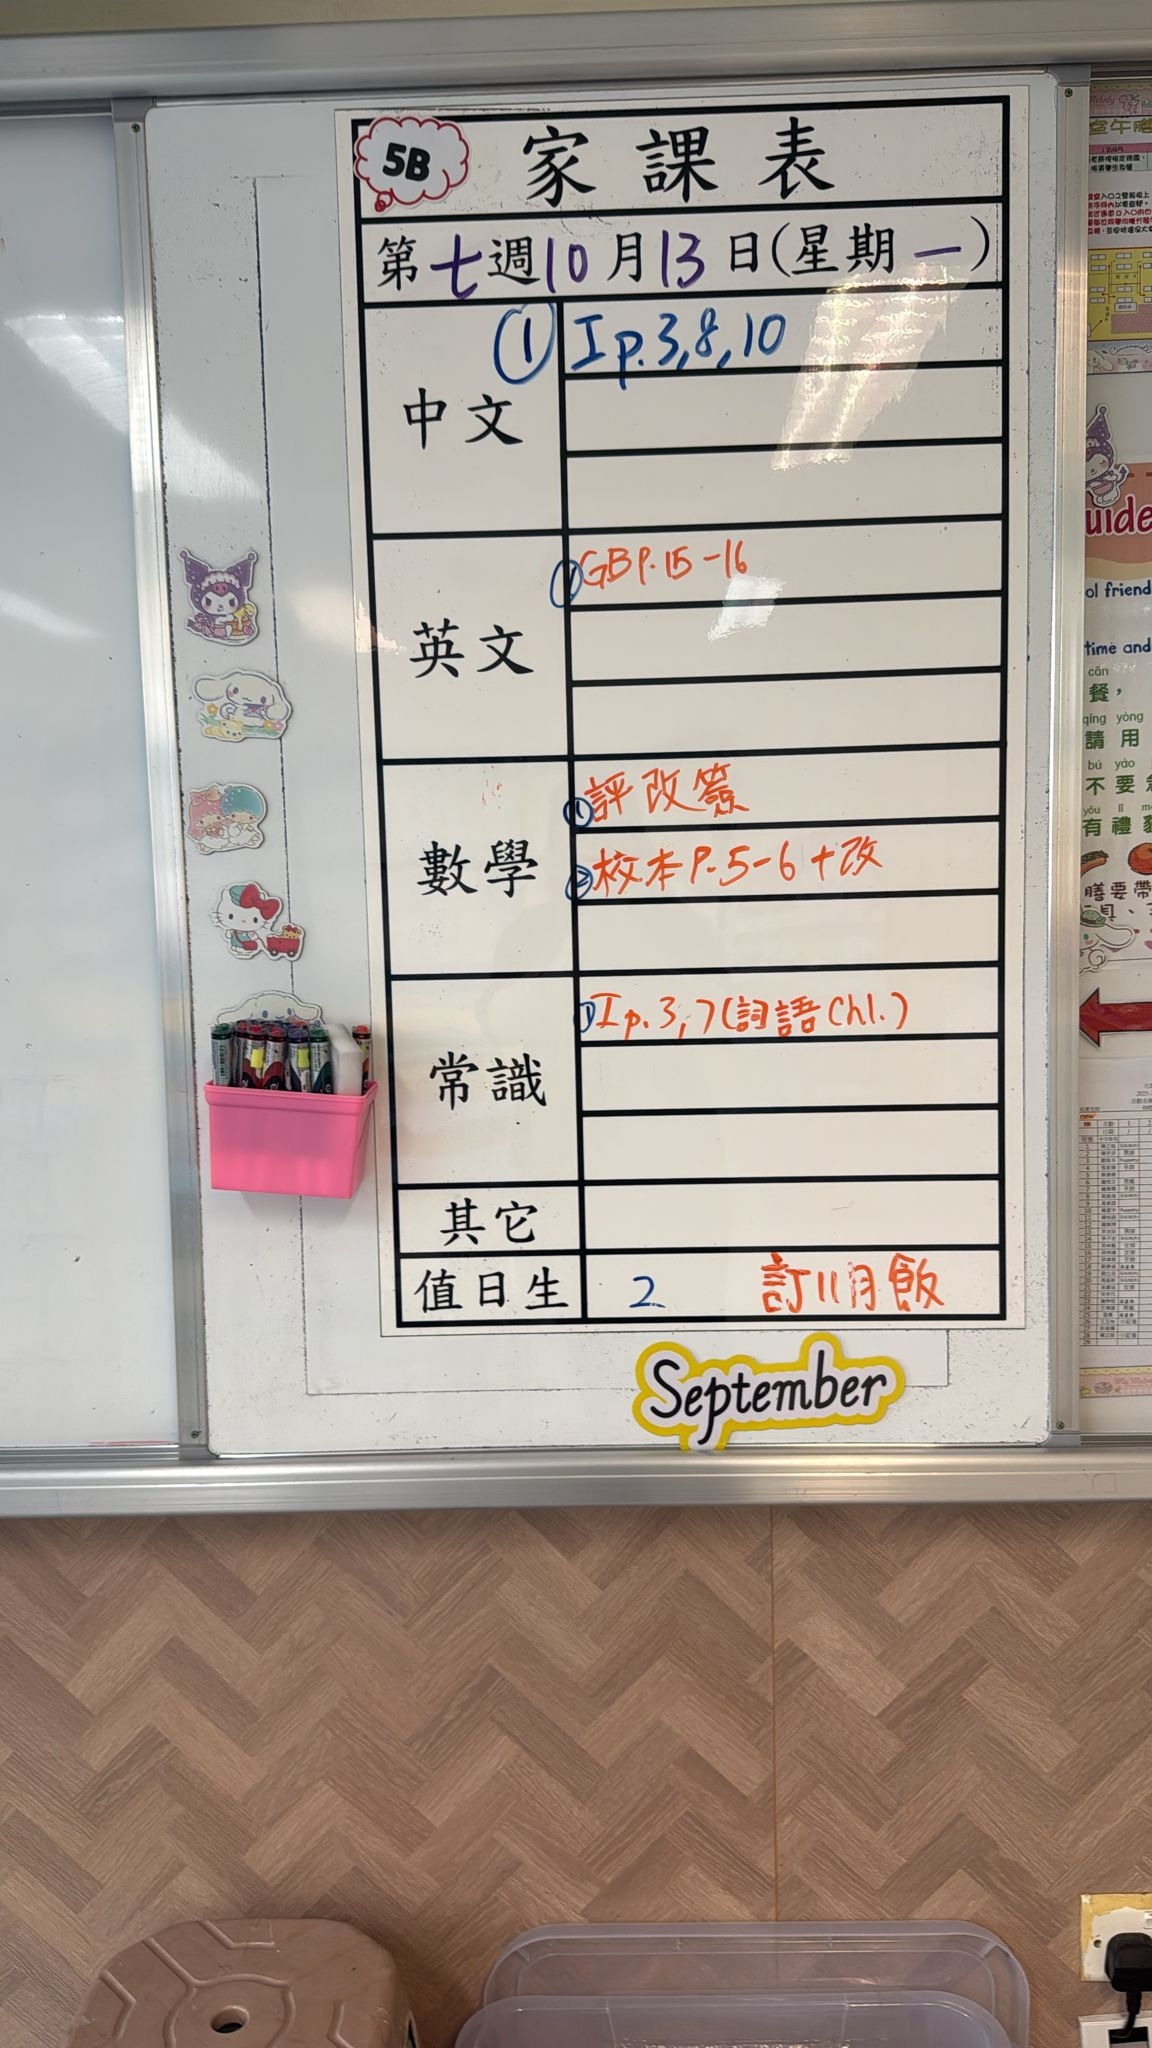 5B
家課表
第七週10月13日(星期一)
中文
① I p.3,8,10
英文
① GB P.15-16
數學
① 評改簽
② 校本 P.5-6+改
常識
① I p.3,7(詞語Ch1.)
其它
值日生
2
訂11月飯
September
uide
ol friend
time and
cān
餐，
qǐng yòng
請用
bú yào
不要
yǒu lǐ
有禮
膳要帶
具、